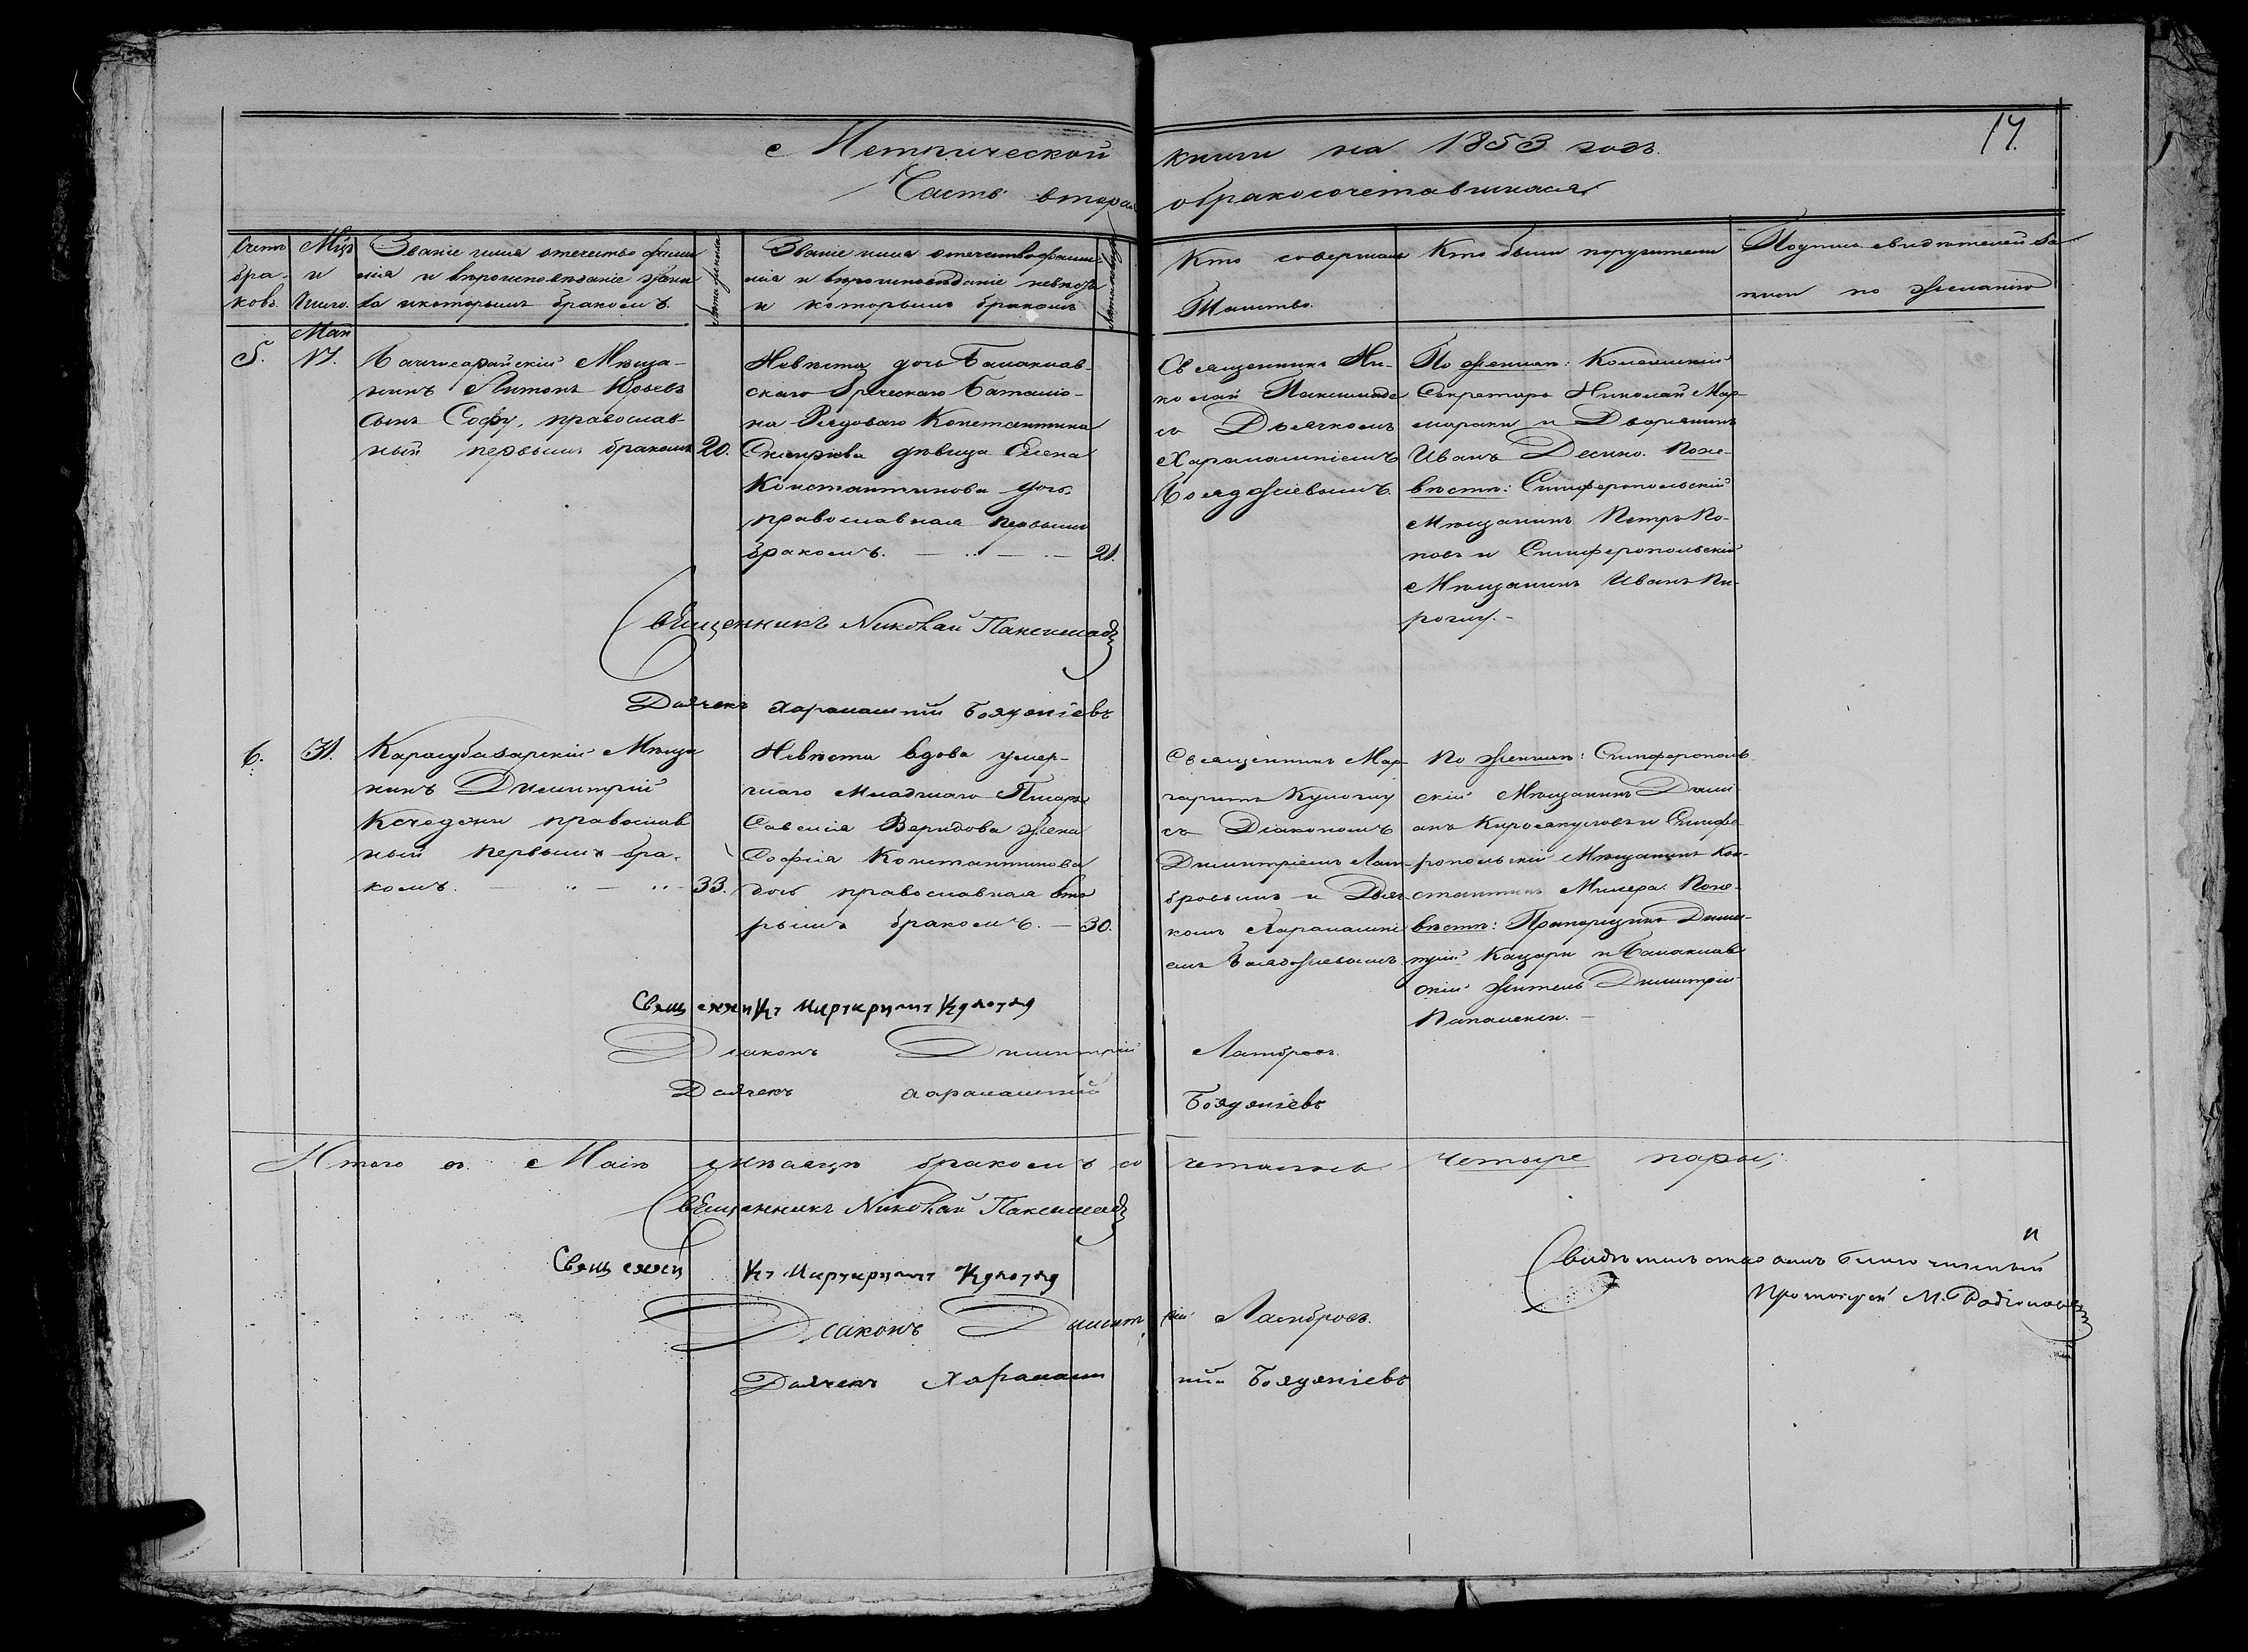 Метрической книги на 1853 годъ.
17.
Часть вторая о бракосочетавшихся
Счетъ
бра-
ковъ.
Мцъ
и
число.
Званіе имя отечество фами
лія и вѣроисповѣданіе жени
ха и которымъ бракомъ.
Лѣта жениха
Званіе имя отечество фами-
лія и вѣроисповѣданіе невѣсты
и которымъ бракомъ
Лѣта невѣсты
Кто совершалъ
Таинство.
Кто были поручители
Подпись свидѣтелей за
писи по желанію
5.
Май
17.
Бахчисарайскій Мѣща-
нинъ Антонъ Юрьевъ
сынъ Софу, православ-
ный первымъ бракомъ
20.
Невѣста дочь Балаклав-
скаго Греческаго Баталіо-
на Рядоваго Константина
дѣвица Елена
Константинова дочь,
православная первымъ
бракомъ.
21.
Священникъ Ни-
колай Паксимаде
съ Дьячкомъ
Харалампіемъ
Бояджіевымъ.
По женихѣ: Колежскій
Секретарь Николай Мар-
мараки и Дворянинъ
Иванъ Десино. По не-
вѣстѣ: Симферопольскій
Мѣщанинъ Петръ По-
повъ и Симферопольскій
Мѣщанинъ Иванъ Пи-
рогиу.
Священникъ Николай Паксимадъ
Дьячекъ Харалампій Бояджіевъ
6.
31.
Карасубазарскій Мѣща
нинъ Димитрій
православ
ный первымъ бра-
комъ.
33.
Невѣста вдова умер-
шаго Младшаго Писаря
Савелія Веридова жена
Софія Константинова
дочь православная вто
рымъ бракомъ.
30.
Священникъ Мар-
гаритъ Кулогиу
съ Діакономъ
Димитріемъ Лам-
бровымъ и Дьяч-
комъ Харалампі
емъ Бояджіевымъ.
По женихѣ: Симферополь
скій Мѣщанинъ Дами-
анъ и Симфе-
ропольскій Мѣщанинъ Кон-
стантинъ Милера. По не-
вѣстѣ: Прапорщикъ Дими-
трій Кацари и Балаклав
скій житель Димитрій
Папалекси.
Священникъ Маргаритъ Кулогиу
Діаконъ Димитрій Ламбровъ.
Дьячекъ Харалампій Бояджіевъ
Итого въ Маѣ мѣсяцѣ бракомъ со четалось четыре пары;
Священникъ Николай Паксимадъ
Священникъ Маргаритъ Кулогиу
Діаконъ Димитрій Ламбровъ.
Дьячекъ Харалампій Бояджіевъ
Свидѣтельствовалъ благочинный
Протоіерей М. Родіоновъ